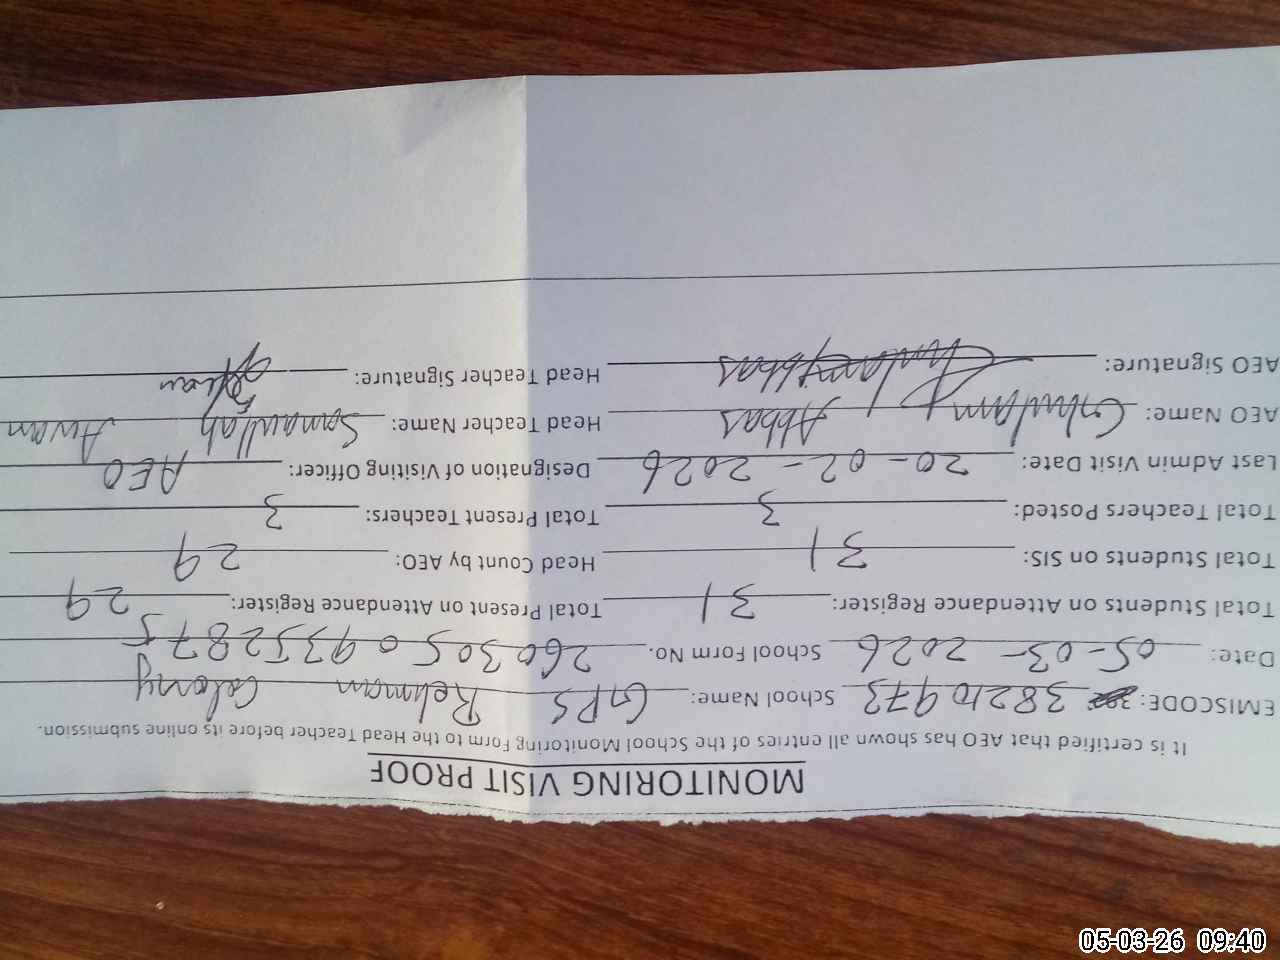 MONITORING VISIT PROOF
It is certified that AEO has shown all entries of the School Monitoring Form to the Head Teacher before its online submission.
EMISCODE: 38210973 School Name: GPS Rehman Colony
Date: 05-03-2026 School Form No. 26030509352875
Total Students on Attendance Register: 31 Total Present on Attendance Register: 29
Total Students on SIS: 31 Head Count by AEO: 29
Total Teachers Posted: 3 Total Present Teachers: 3
Last Admin Visit Date: 20-02-2026 Designation of Visiting Officer: AEO
AEO Name: Ghulam Abbas Head Teacher Name: Sanaullah Awan
AEO Signature: Ghulam Abbas Head Teacher Signature:
05-03-26 09:40